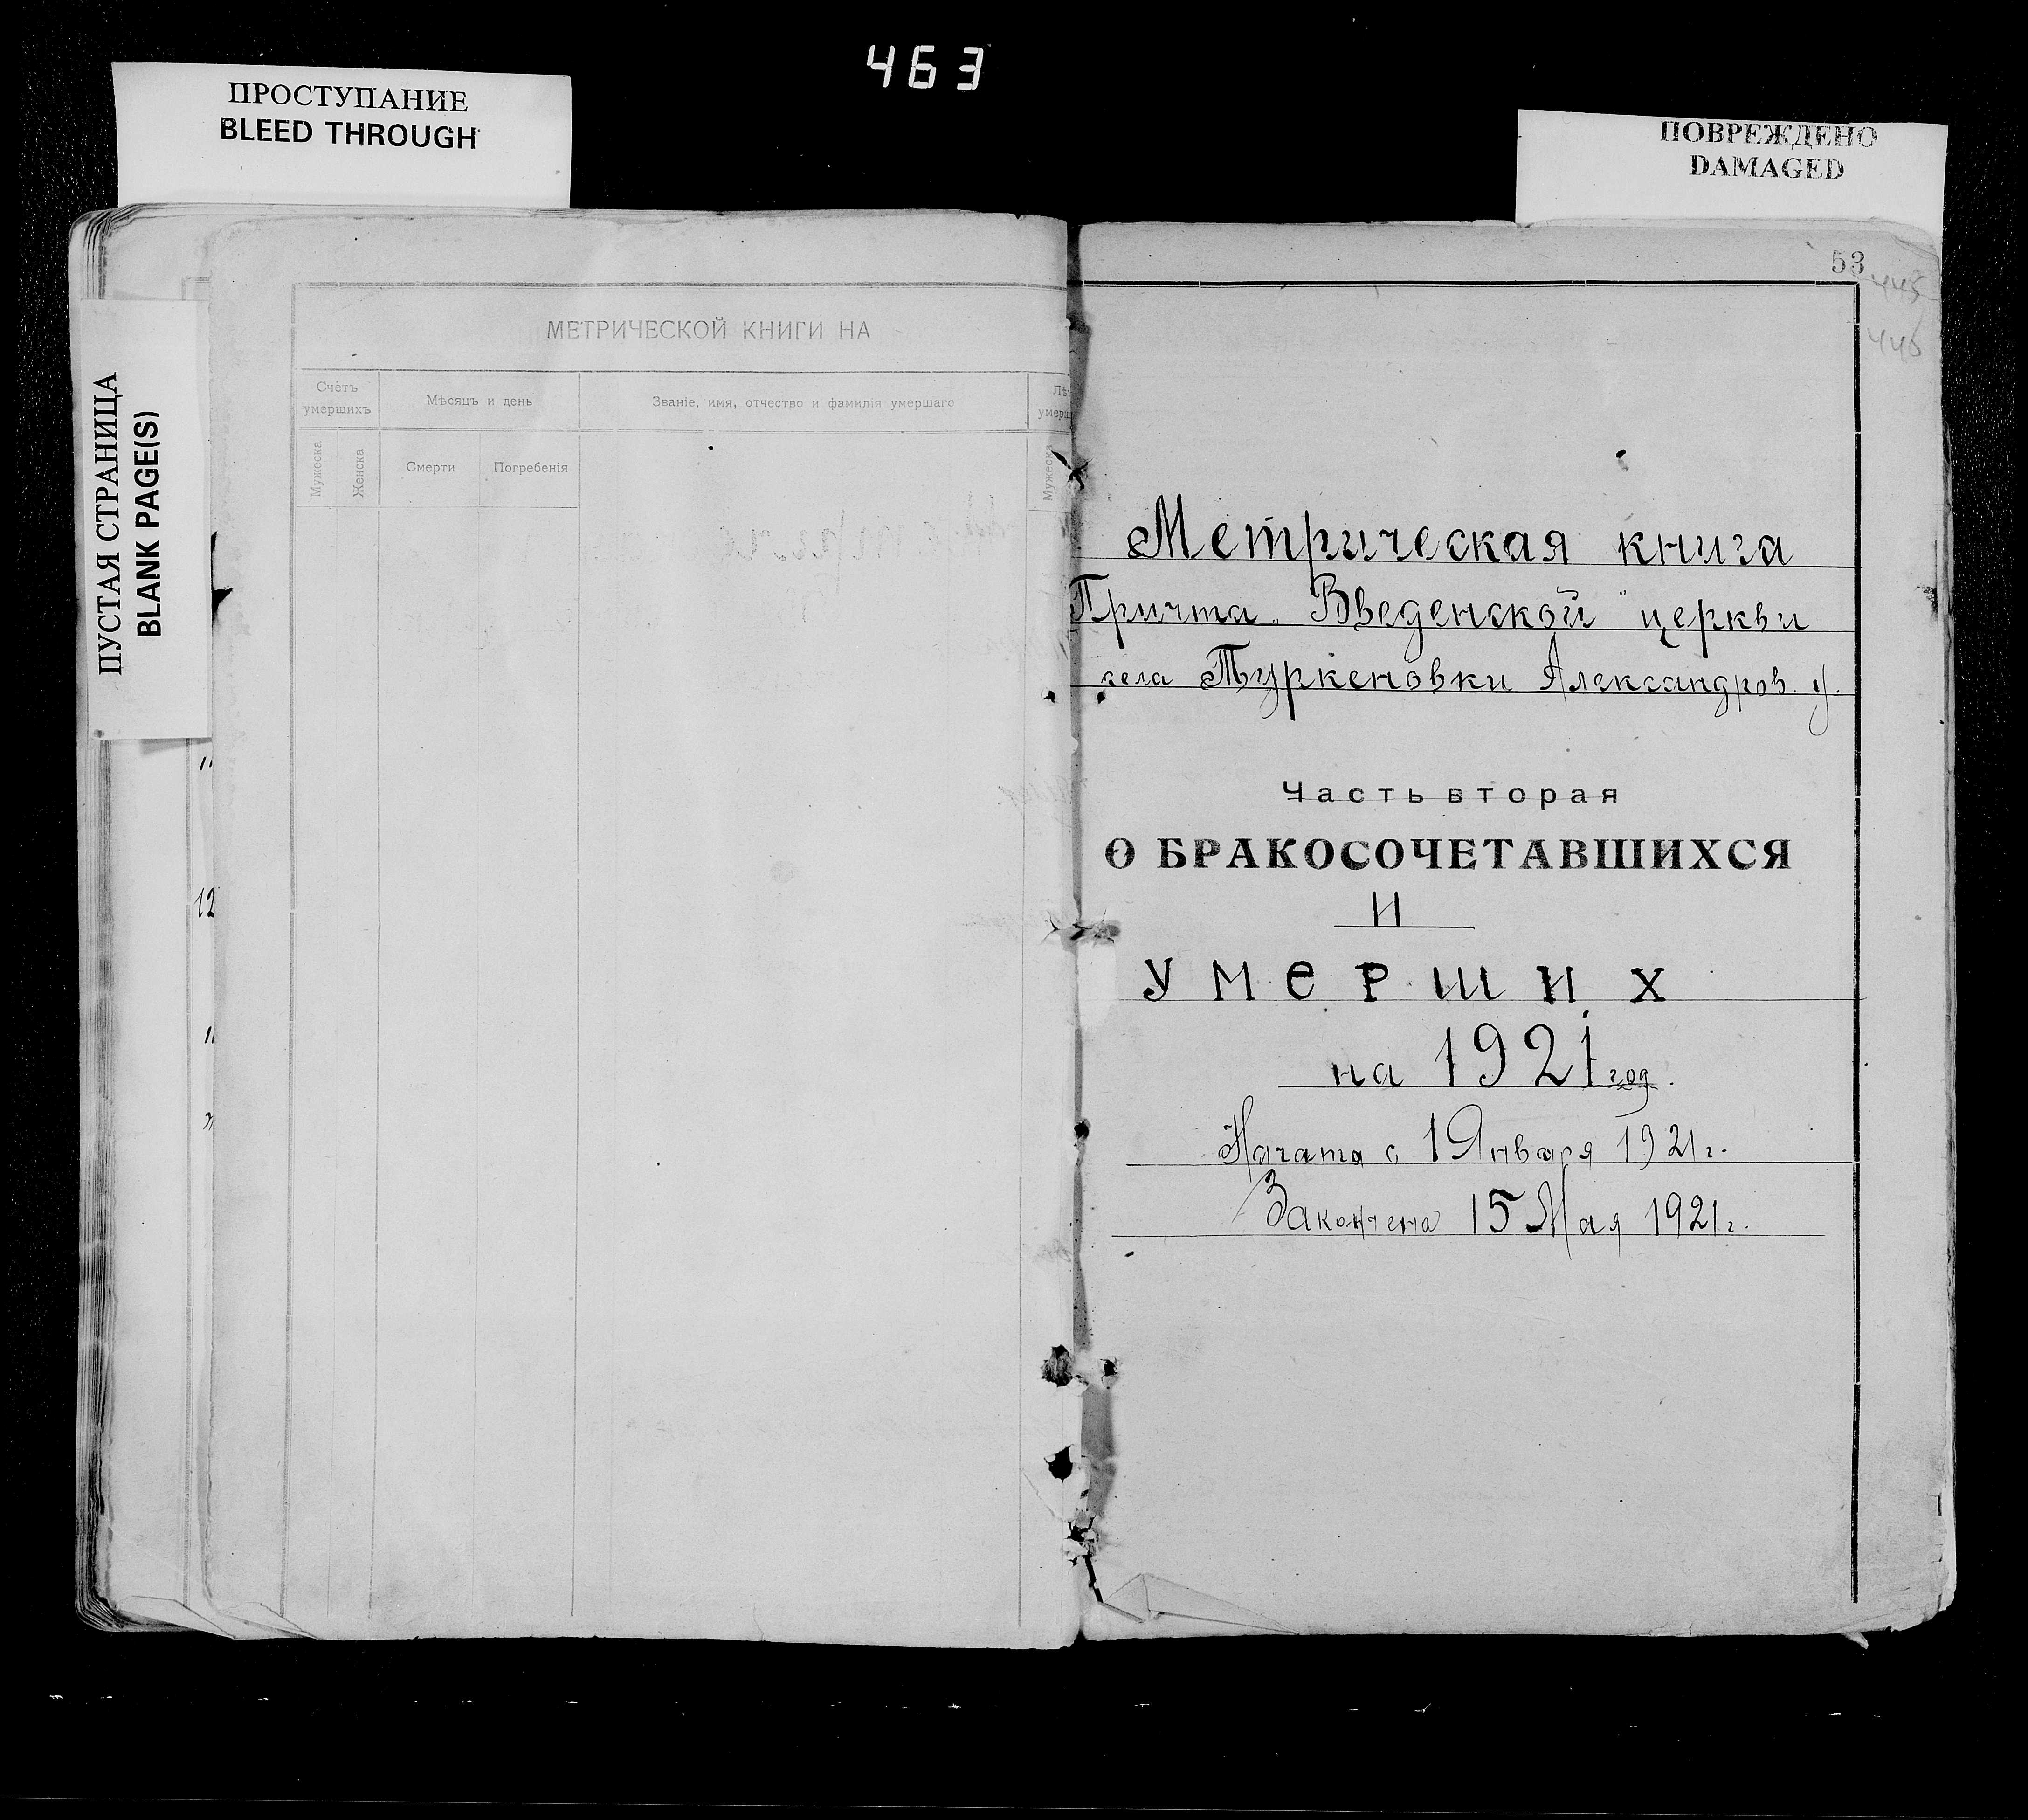 463
ПРОСТУПАНИЕ
BLEED THROUGH
ПОВРЕЖДЕНО
DAMAGED
ПУСТАЯ СТРАНИЦА
BLANK PAGE(S)
12
МЕТРИЧЕСКОЙ КНИГИ НА
Счетъ умершихъ
Мѣсяцъ и день
Званіе, имя, отчество и фамилія умершаго
Мужеска
Женска
Смерти
Погребенія
Мужеска
53
445
446
Метрическая книга
Причта Введенской церкви
села Туркеновки Александров. у.
Часть вторая
О БРАКОСОЧЕТАВШИХСЯ
и
умерших
на 1921 год.
Начата с 1 Января 1921 г.
Закончена 15 Мая 1921 г.